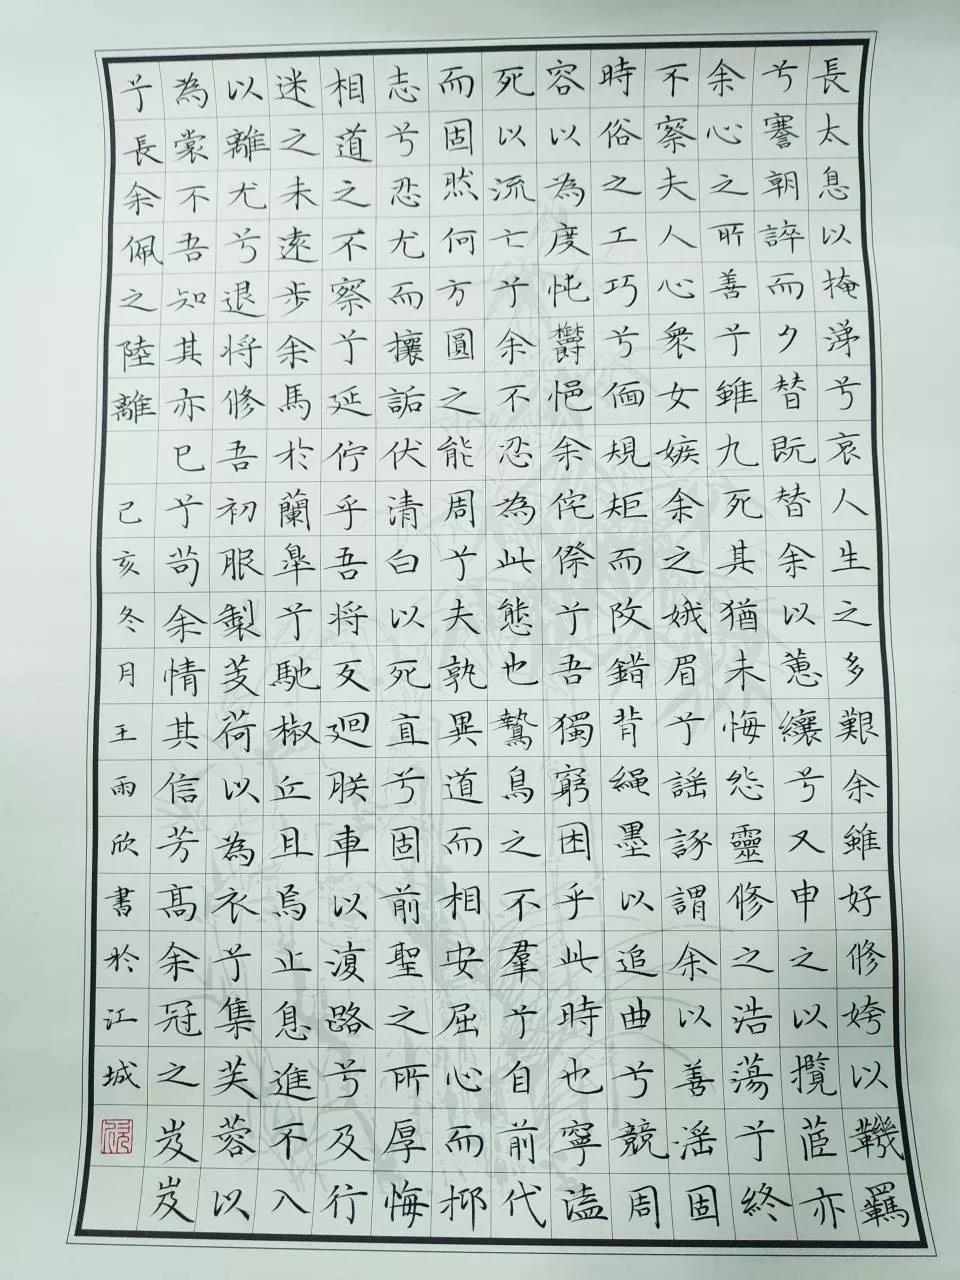 長太息以掩涕兮哀人生之多艱余雖好修姱以鞿羈
兮謇朝誶而夕替既替余以蕙纕兮又申之以攬茝亦
余心之所善兮雖九死其猶未悔怨靈修之浩蕩兮終
不察夫人心衆女嫉余之娥眉兮謡諑謂余以善淫固
時俗之工巧兮偭規矩而改錯背繩墨以追曲兮競周
容以為度忳鬱悒余侘傺兮吾獨窮困乎此時也寧溘
死以流亡兮余不忍為此態也鷙鳥之不羣兮自前代
而固然何方圓之能周兮夫孰異道而相安屈心而抑
志兮忍尤而攘詬伏清白以死直兮固前聖之所厚悔
相道之不察兮延佇乎吾将反廻朕車以復路兮及行
迷之未遠步余馬於蘭皋兮馳椒丘且焉止息進不入
以離尤兮退将修吾初服製芰荷以為衣兮集芙蓉以
為裳不吾知其亦已兮苟余情其信芳高余冠之岌岌
兮長余佩之陸離 己亥冬月王雨欣書於江城